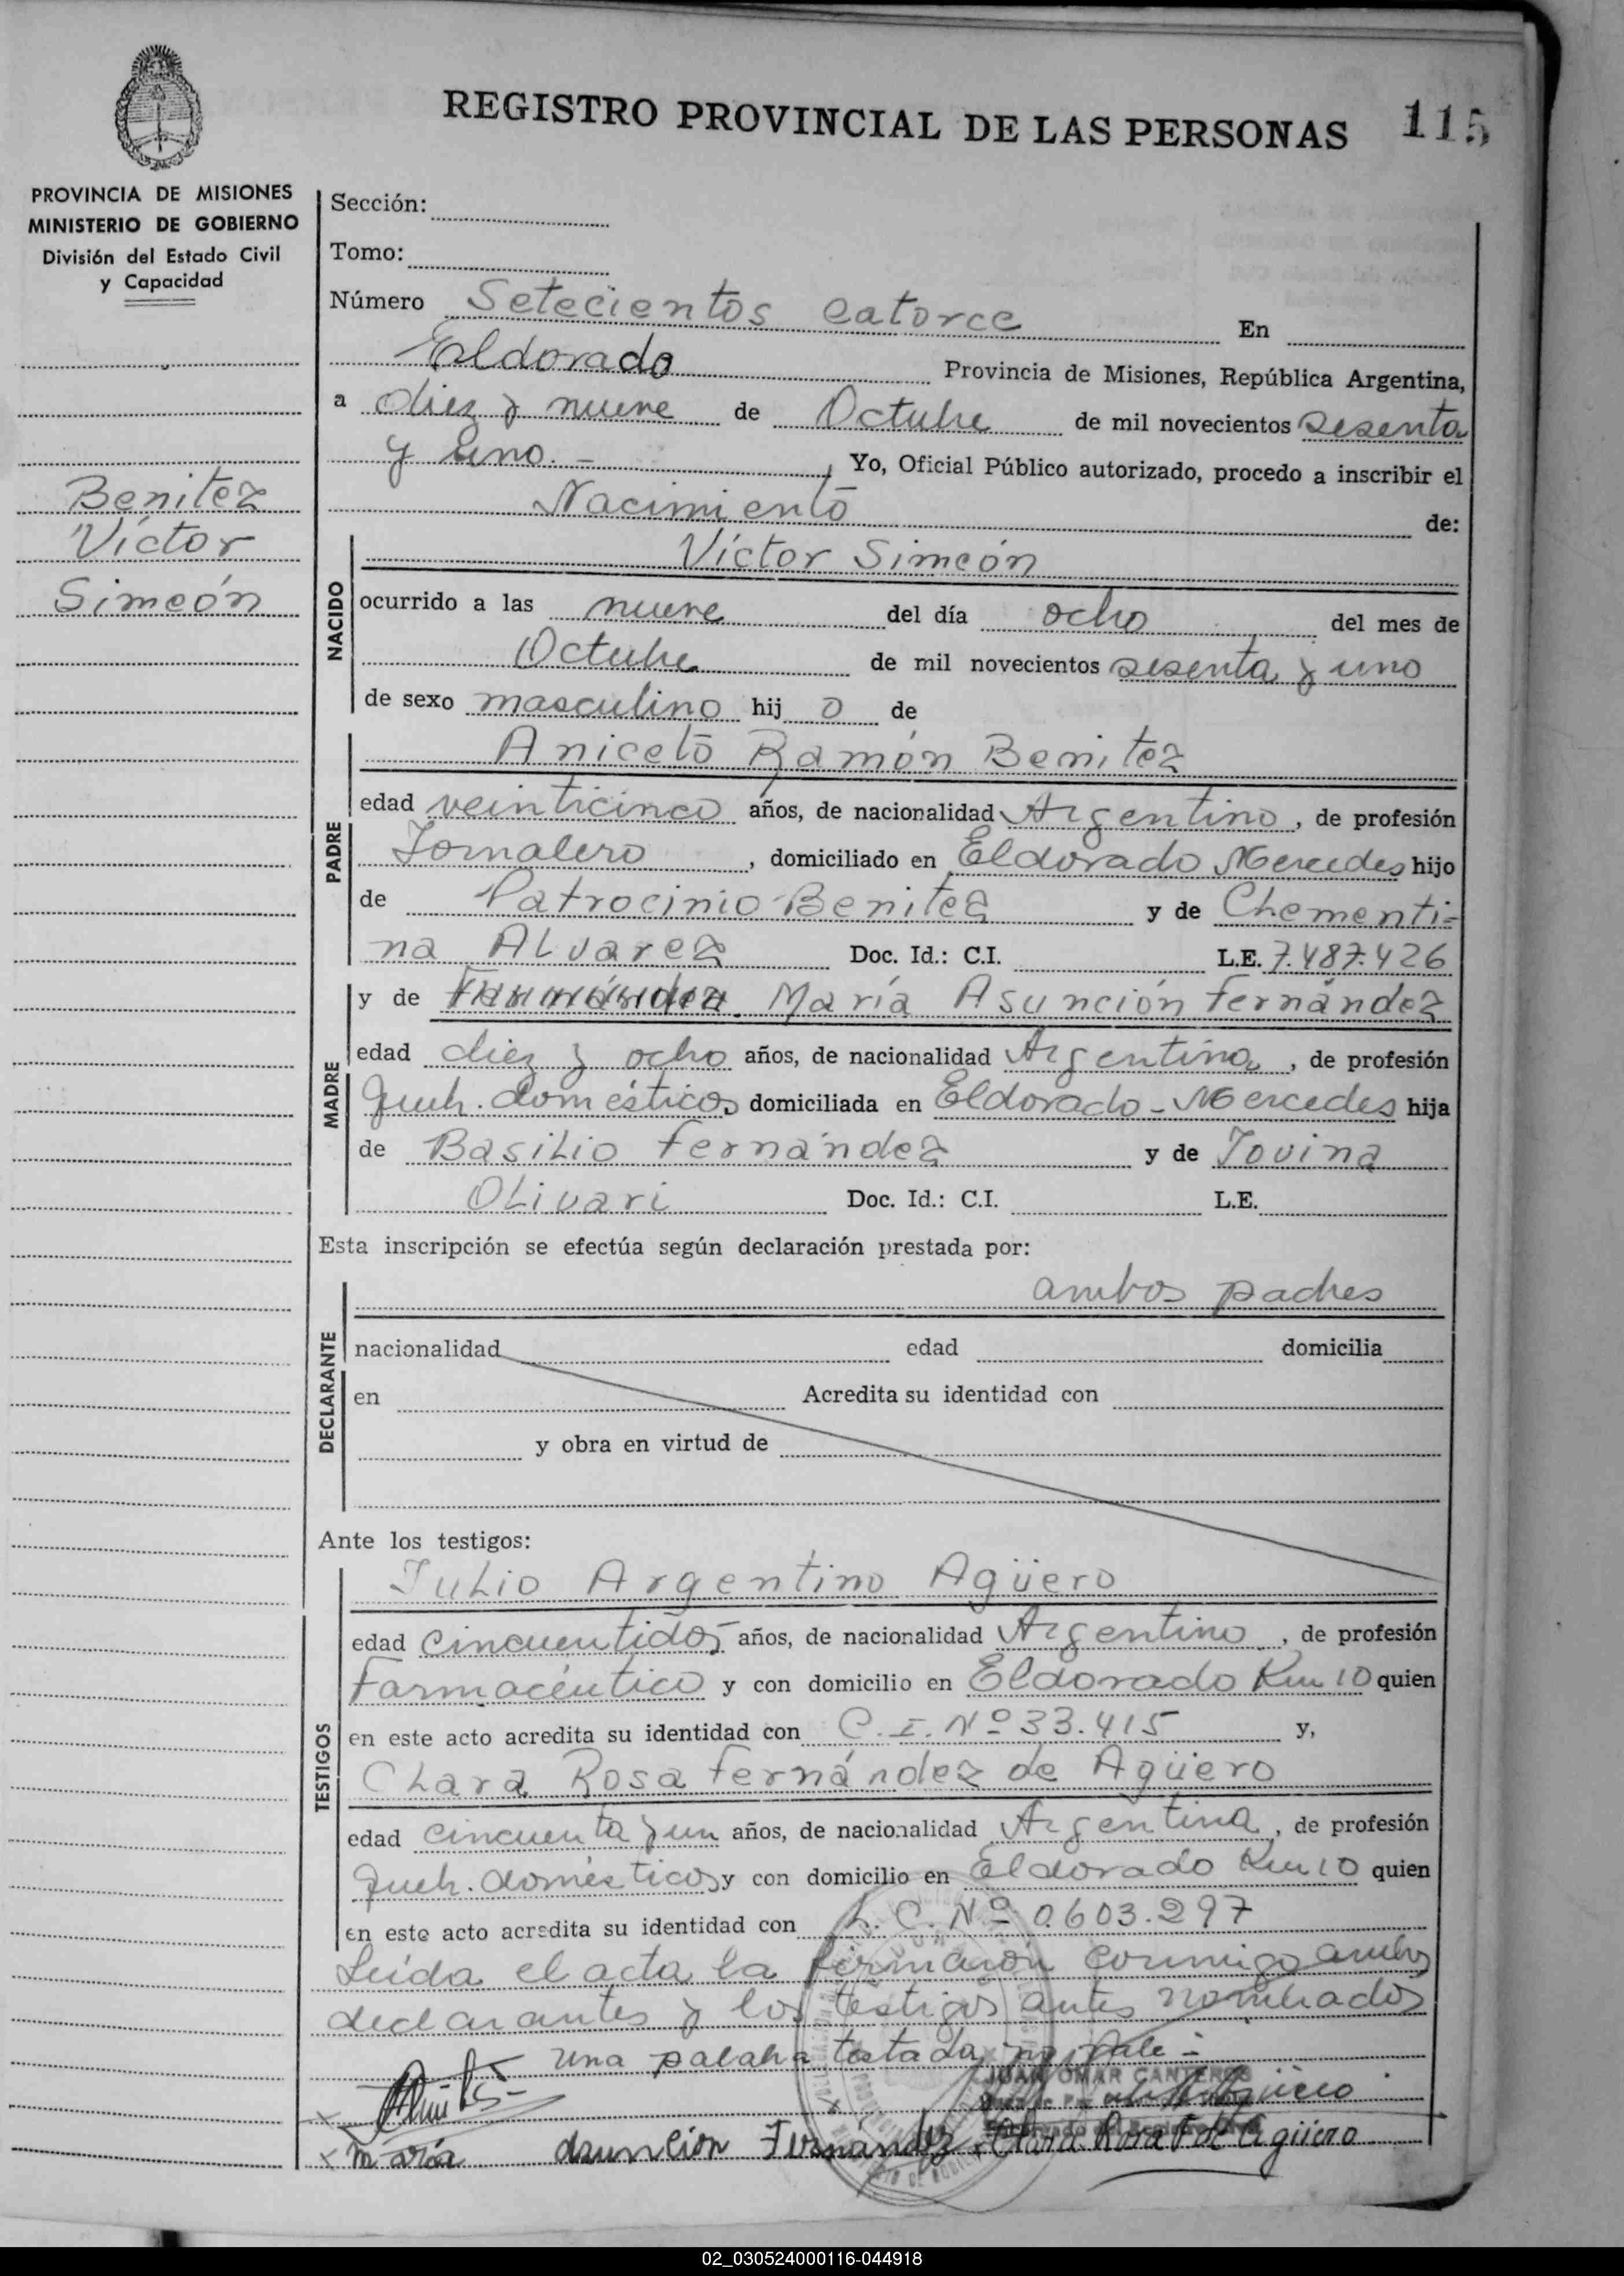 REGISTRO PROVINCIAL DE LAS PERSONAS 115
PROVINCIA DE MISIONES
MINISTERIO DE GOBIERNO
División del Estado Civil
y Capacidad
Benitez
Víctor
Simeón
Sección:
Tomo:
Número Setecientos catorce En
Eldorado Provincia de Misiones, República Argentina,
a diez y nueve de Octubre de mil novecientos sesenta
y uno. - , Yo, Oficial Público autorizado, procedo a inscribir el
Nacimiento de:
NACIDO
Víctor Simeón
ocurrido a las nueve del día ocho del mes de
Octubre de mil novecientos sesenta y uno
de sexo masculino hij o de
PADRE
Aniceto Ramón Benitez
edad veinticinco años, de nacionalidad Argentino, de profesión
Jornalero, domiciliado en Eldorado Mercedes hijo
de Patrocinio Benitez y de Clementi=
na Alvarez Doc. Id.: C.I. L.E. 7.487.426
MADRE
y de María Asunción Fernández
edad diez y ocho años, de nacionalidad Argentina, de profesión
queh. domésticos domiciliada en Eldorado - Mercedes hija
de Basilio Fernández y de Jovina
Olivari Doc. Id.: C.I. L.E.
Esta inscripción se efectúa según declaración prestada por:
DECLARANTE
ambos padres
nacionalidad edad domicilia
en Acredita su identidad con
y obra en virtud de
Ante los testigos:
TESTIGOS
Julio Argentino Agüero
edad cincuentidós años, de nacionalidad Argentino, de profesión
Farmacéutico y con domicilio en Eldorado Km 10 quien
en este acto acredita su identidad con C. I. Nº 33.415 y,
Clara Rosa Fernández de Agüero
edad cincuenta y un años, de nacionalidad Argentina, de profesión
queh. domésticos y con domicilio en Eldorado Km 10 quien
en este acto acredita su identidad con L. C. Nº 0.603.297
Leída el acta la firmaron conmigo ambos
declarantes y los testigos antes nombrados
una palabra testada no vale -
JUAN OMAR CANTEROS
María Asunción Fernández Clara Rosa F de Agüero
02_030524000116-044918